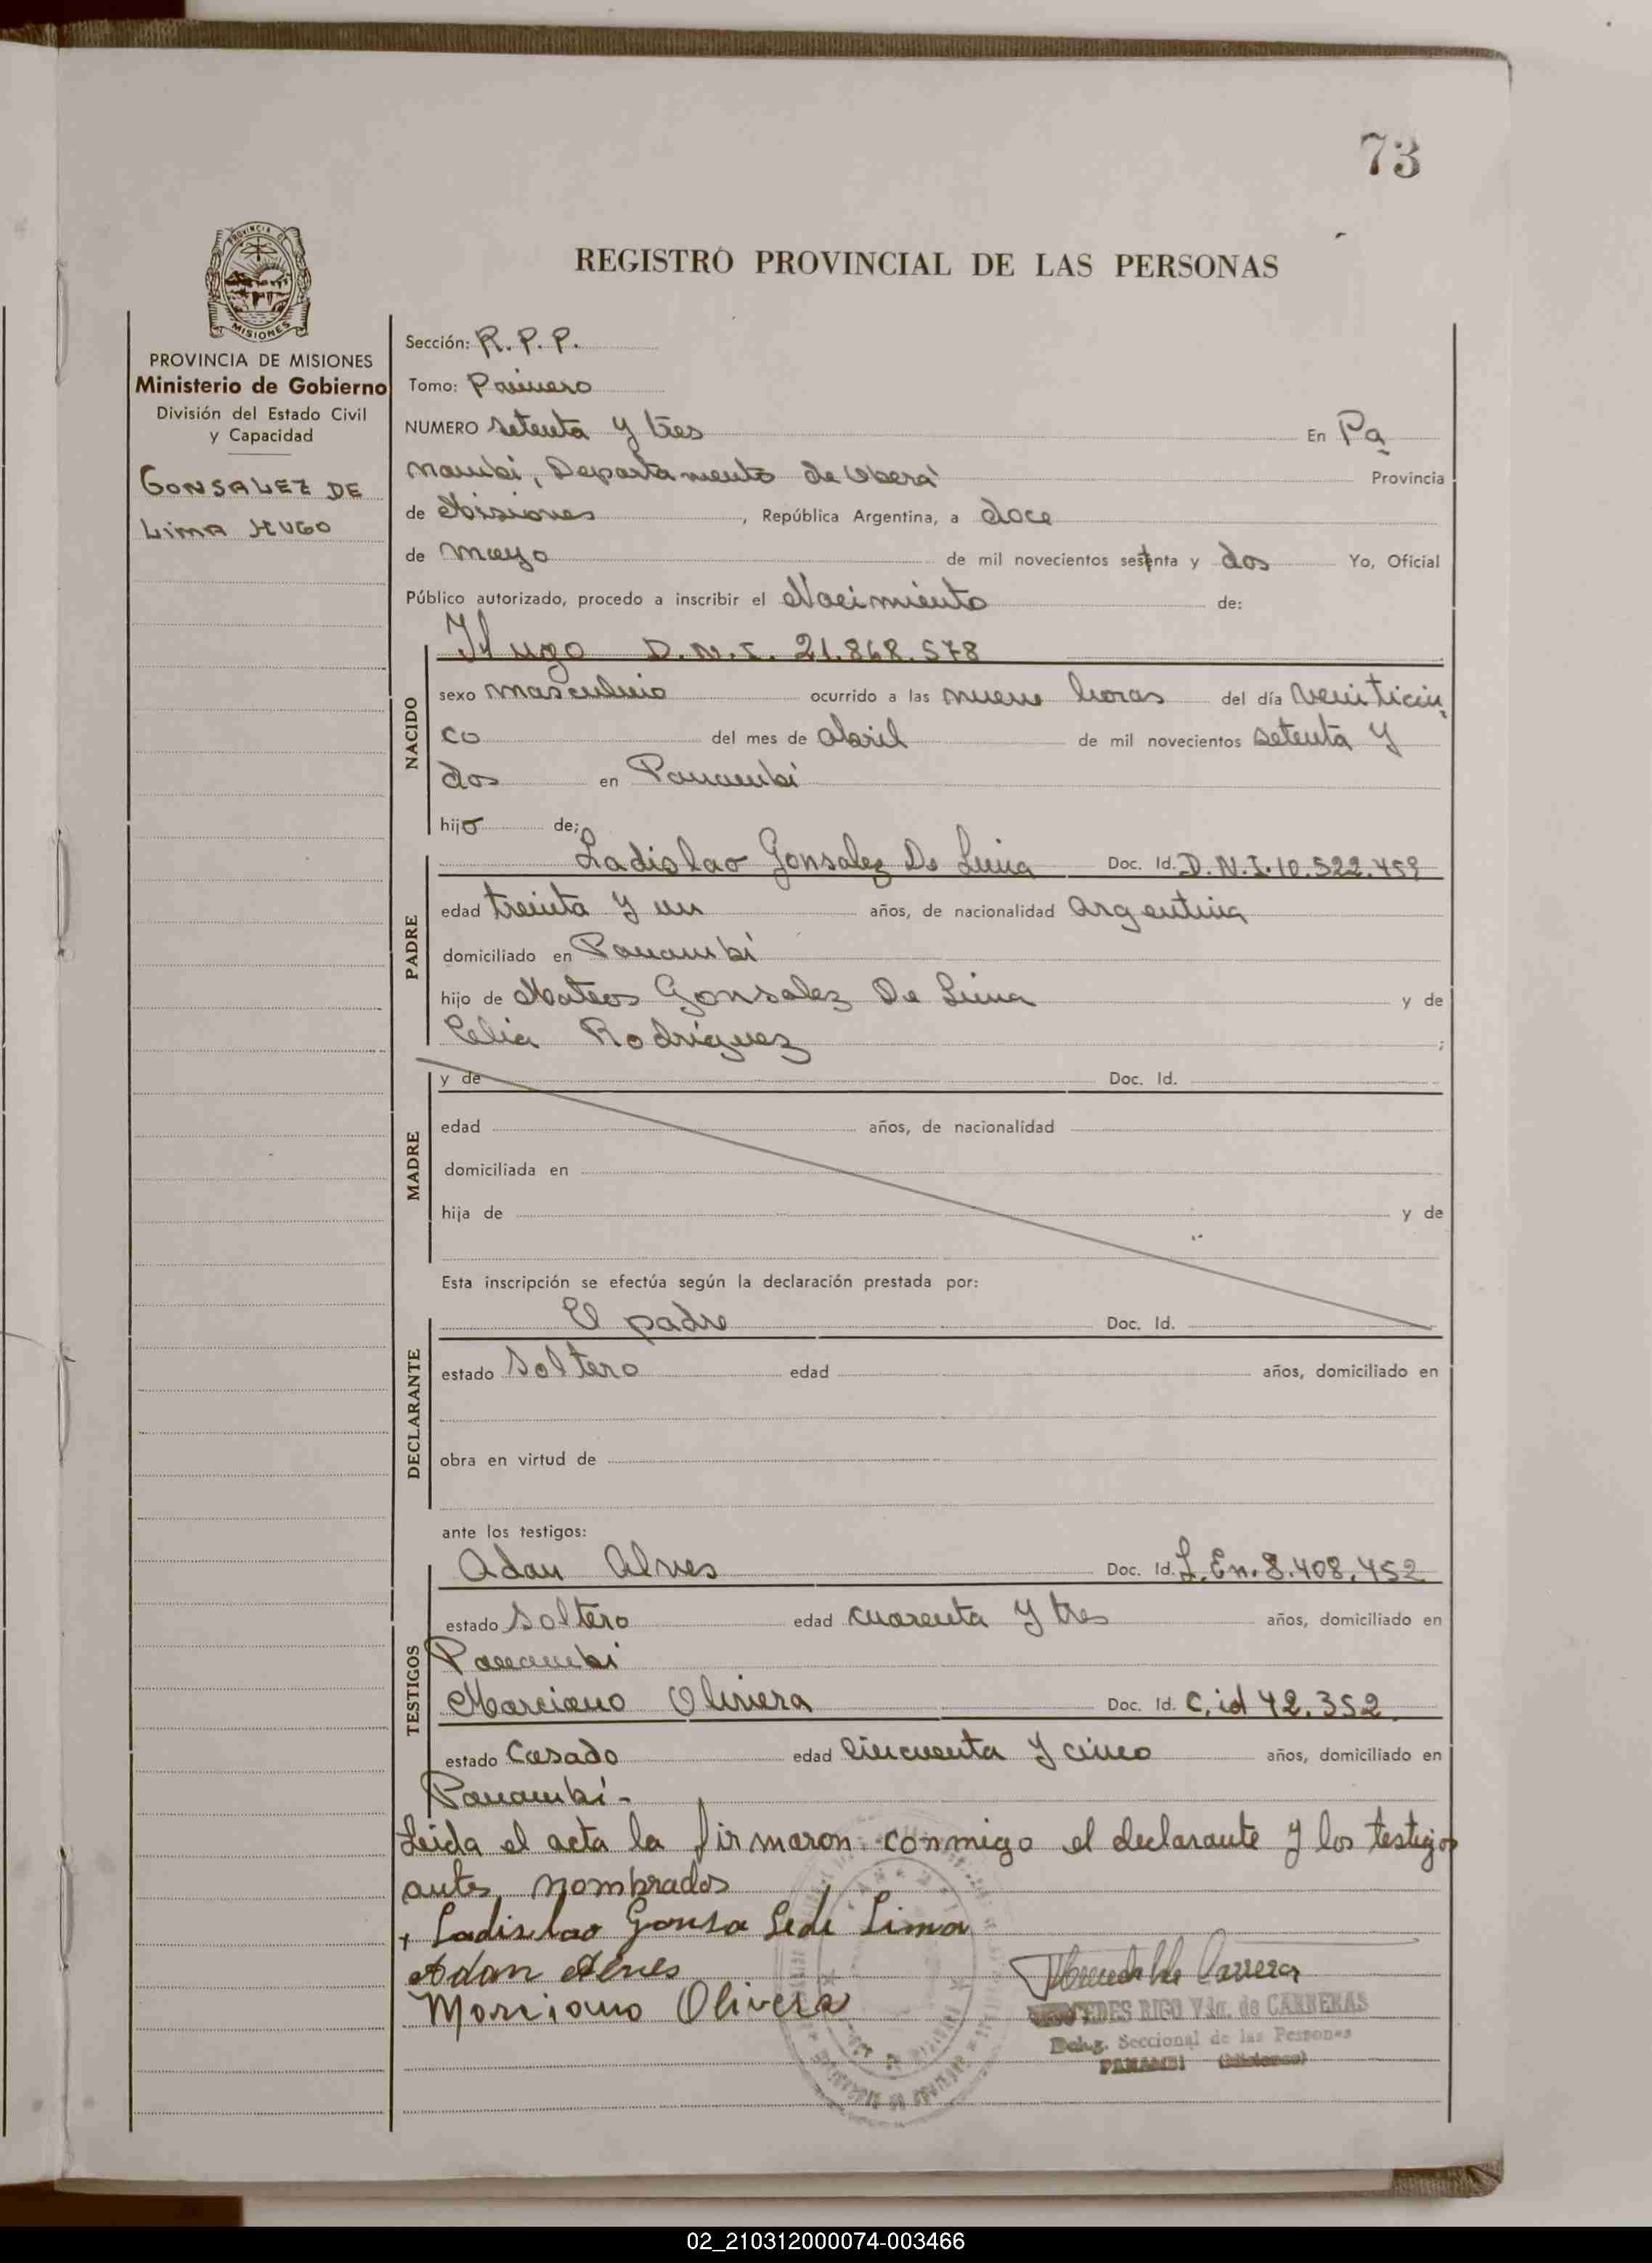 73
REGISTRO PROVINCIAL DE LAS PERSONAS
PROVINCIA DE MISIONES
Ministerio de Gobierno
División del Estado Civil
y Capacidad
GONSALEZ DE
LIMA HUGO
Sección: R. P. P.
Tomo: Primero
NUMERO setenta y tres En Pa
nambí, Departamento de Oberá Provincia
de Misiones, República Argentina, a doce
de mayo de mil novecientos setenta y dos Yo, Oficial
Público autorizado, procedo a inscribir el Nacimiento de:
NACIDO
Hugo D.N.I. 21.868.578
sexo masculino ocurrido a las nueve horas del día veinticin
co del mes de abril de mil novecientos setenta y
dos en Panambí
hijo de;
PADRE
Ladislao Gonsalez De Lima Doc. Id. D.N.I. 10.522.459
edad treinta y un años, de nacionalidad argentina
domiciliado en Panambí
hijo de Mateos Gonsalez De Lima y de
Celia Rodríguez ;
MADRE
y de Doc. Id.
edad años, de nacionalidad
domiciliada en
hija de y de
Esta inscripción se efectúa según la declaración prestada por:
DECLARANTE
El padre Doc. Id.
estado soltero edad años, domiciliado en
obra en virtud de
ante los testigos:
TESTIGOS
Adan Alves Doc. Id. L. En. 8.408.452
estado soltero edad cuarenta y tres años, domiciliado en
Panambí
Marciano Olivera Doc. Id. C. id 42.352
estado casado edad cincuenta y cinco años, domiciliado en
Panambí-
Leida el acta la firmaron conmigo el declarante y los testigos
antes nombrados
Ladislao Gonsa Lede Lima
Adan Alves
Morciano Olivera
MERCEDES RIGO Vda. de CARRERAS
Deleg. Seccional de las Personas
PANAMBI (Misiones)
02_210312000074-003466